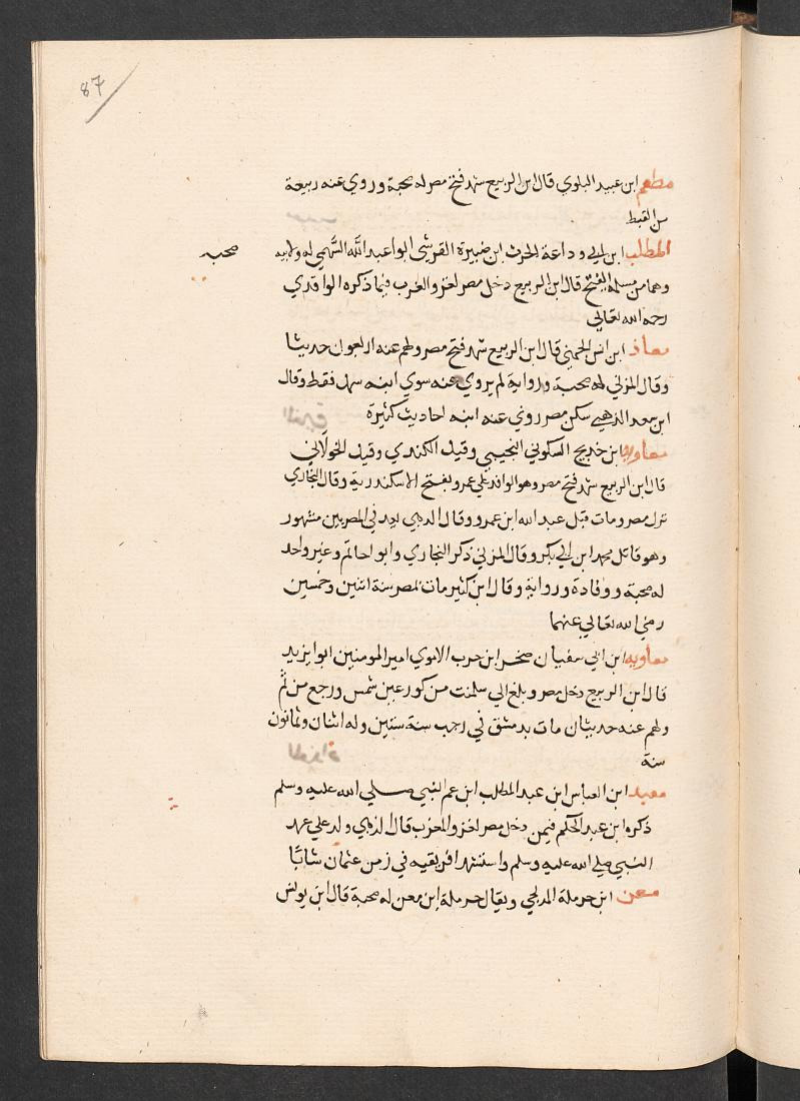 87
مطعم ابن عبيد البلوي قال ابن الربيع شهد فتح مصر له صحبة وروي عنه ربيعة
من القبط
المطلب ابن ابي وداعة الحرث ابن ضبيرة القرشي ابوا عبد الله السَّهمي له ولابيه صحبه
وهما من مسلمة الفتح قال ابن الربيع دخل مصر لغزو الغرب فيما ذكره الواقدي
رحمه الله تعالي
معاذ ابن انس الجهني قال ابن الربيع شهد فتح مصر ولهم عنه اربعون حديثا
وقال المزني له صحبة ورواية لم يروي عنه سوي ابنه سهل فقط وقال
ابن سعد الذهبي سكن مصر روي عنه ابنه احاديث كثيرة
معاويه ابن خديج السكوني التجيبي وقيل الكندي وقيل الخولاني
قال ابن الربيع شهد فتح مصر وهو الوافد علي عمر بفتح الاسكندرية وقال البخاري
نزل مصر ومات قبل عبد الله ابن عمرو وقال الذهبي يعد في المصريين مشهور
وهو قاتل محمد ابن ابي بكر وقال المزني ذكر البخاري وابوا حاتم وغير واحد
له صحبة ووفادة ورواية وقال ابن كثير مات بمصر سنة اثنين وخمسين
رضي الله تعالي عنهما
معاويه ابن ابي سفيان صخر ابن حرب الاموي امير المومنين ابوا يزيد
قال ابن الربيع دخل مصر وبلغ الي سلمنت من كور عين شمس ورجع من ثَم
ولهم عنه حديثان مات بدمشق في رجب سنة ستين وله اثنان وثمانون
سنة
معبد ابن العباس ابن عبد المطلب ابن عم النبي صلي الله عليه وسلم
ذكره ابن عبد الحكم فيمن دخل مصر لغزو المغرب قال الذهبي ولد علي عهد
النبي صلي الله عليه وسلم واستشهد افريقيه في زمن عثمان شابًا
معن ابن حرملة المدلجي ويقال حرملة ابن معن له صحبة قال ابن يونس